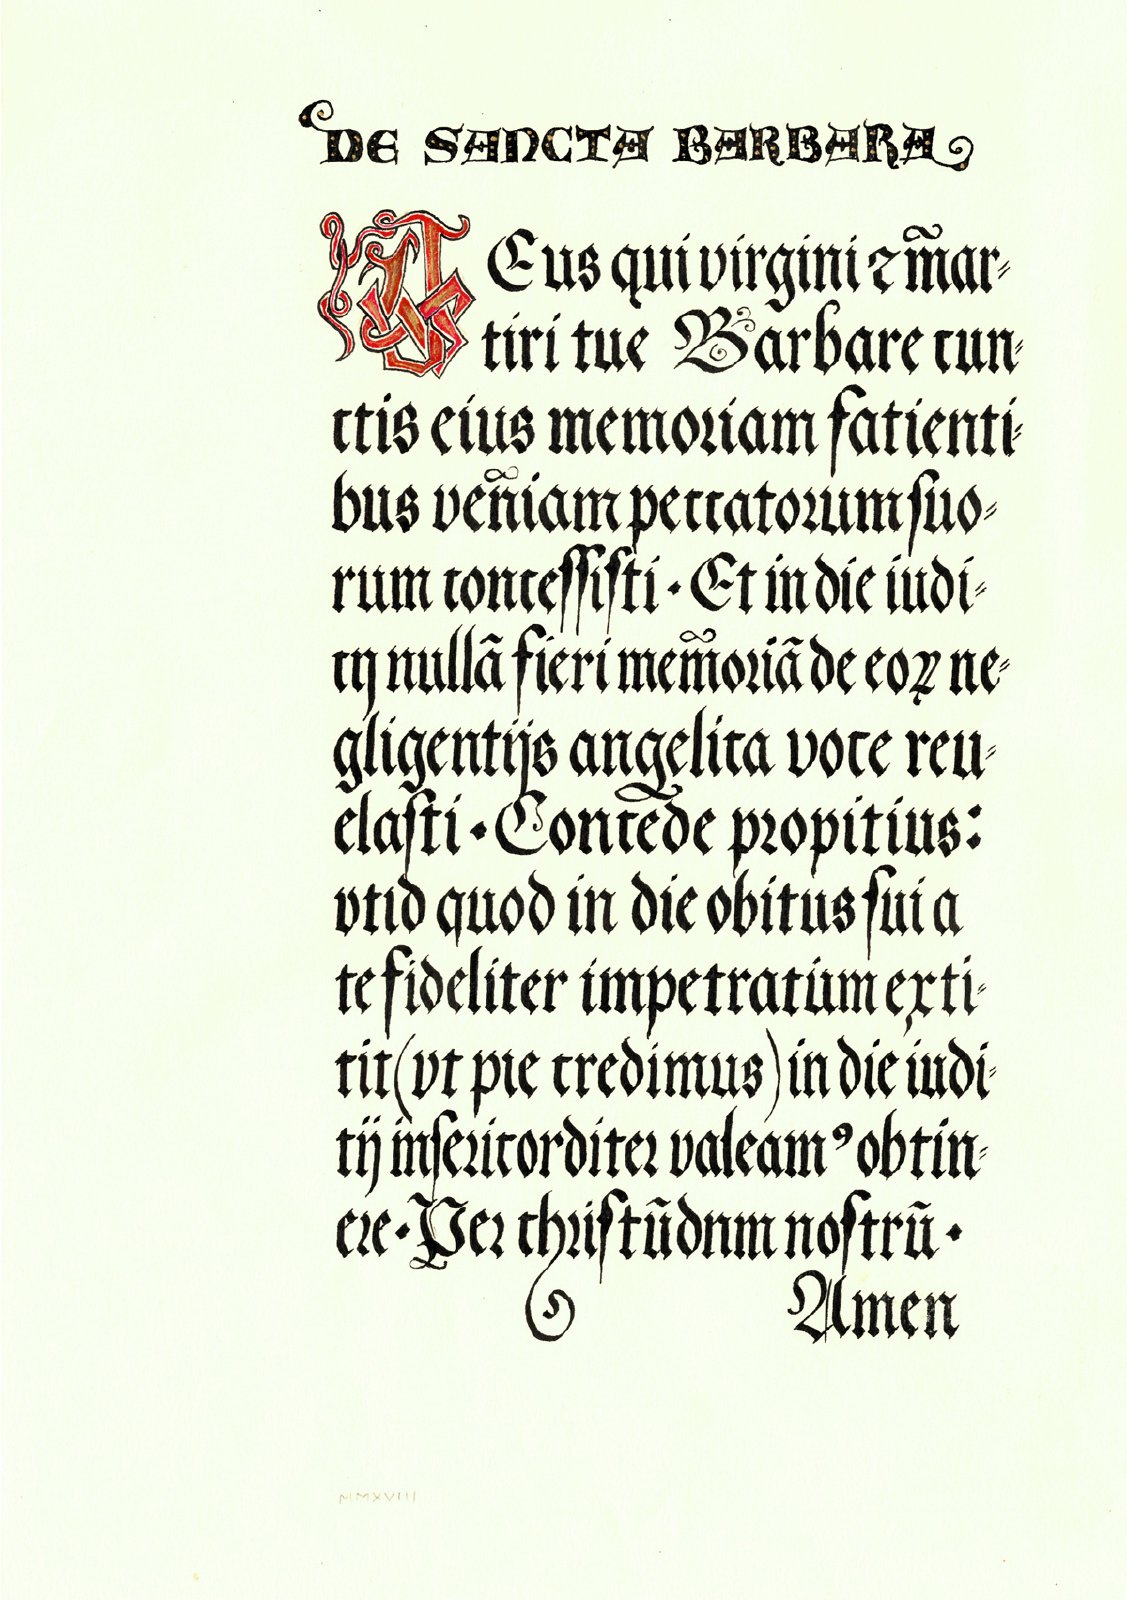 DE SANCTA BARBARA
DEus qui virgini ⁊ m̃ar⸗
tiri tue Barbare cun⸗
ctis eius memoꝛiam fatienti⸗
bus veñiam peccatoꝛum ſuo⸗
rum conceſſiſti · Et in die iudi⸗
cij nullã fieri mem̃oꝛiã de eoꝝ ne⸗
gligentijs angelica voce reu⸗
elaſti · Concede pꝛopitius:
vt id quod in die obitus ſui a
te fideliter impetratum exti⸗
tit (vt pie credimus) in die iudi⸗
tij inſeꝛicorditeꝛ valeamꝰ obtin⸗
eꝛe · Peꝛ chꝛiſtũ dnm noſtrũ ·
Amen
MMXVIII